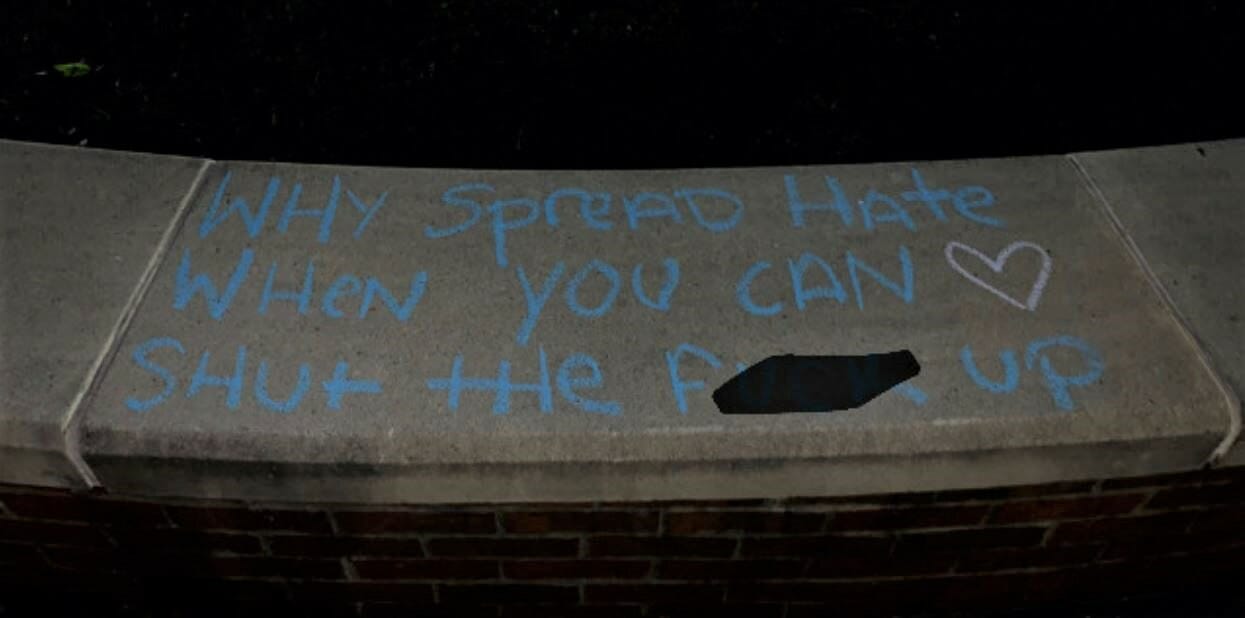 WHY SpreAD HAte
WHeN YOU CAN
SHUt tHe FUCK UP